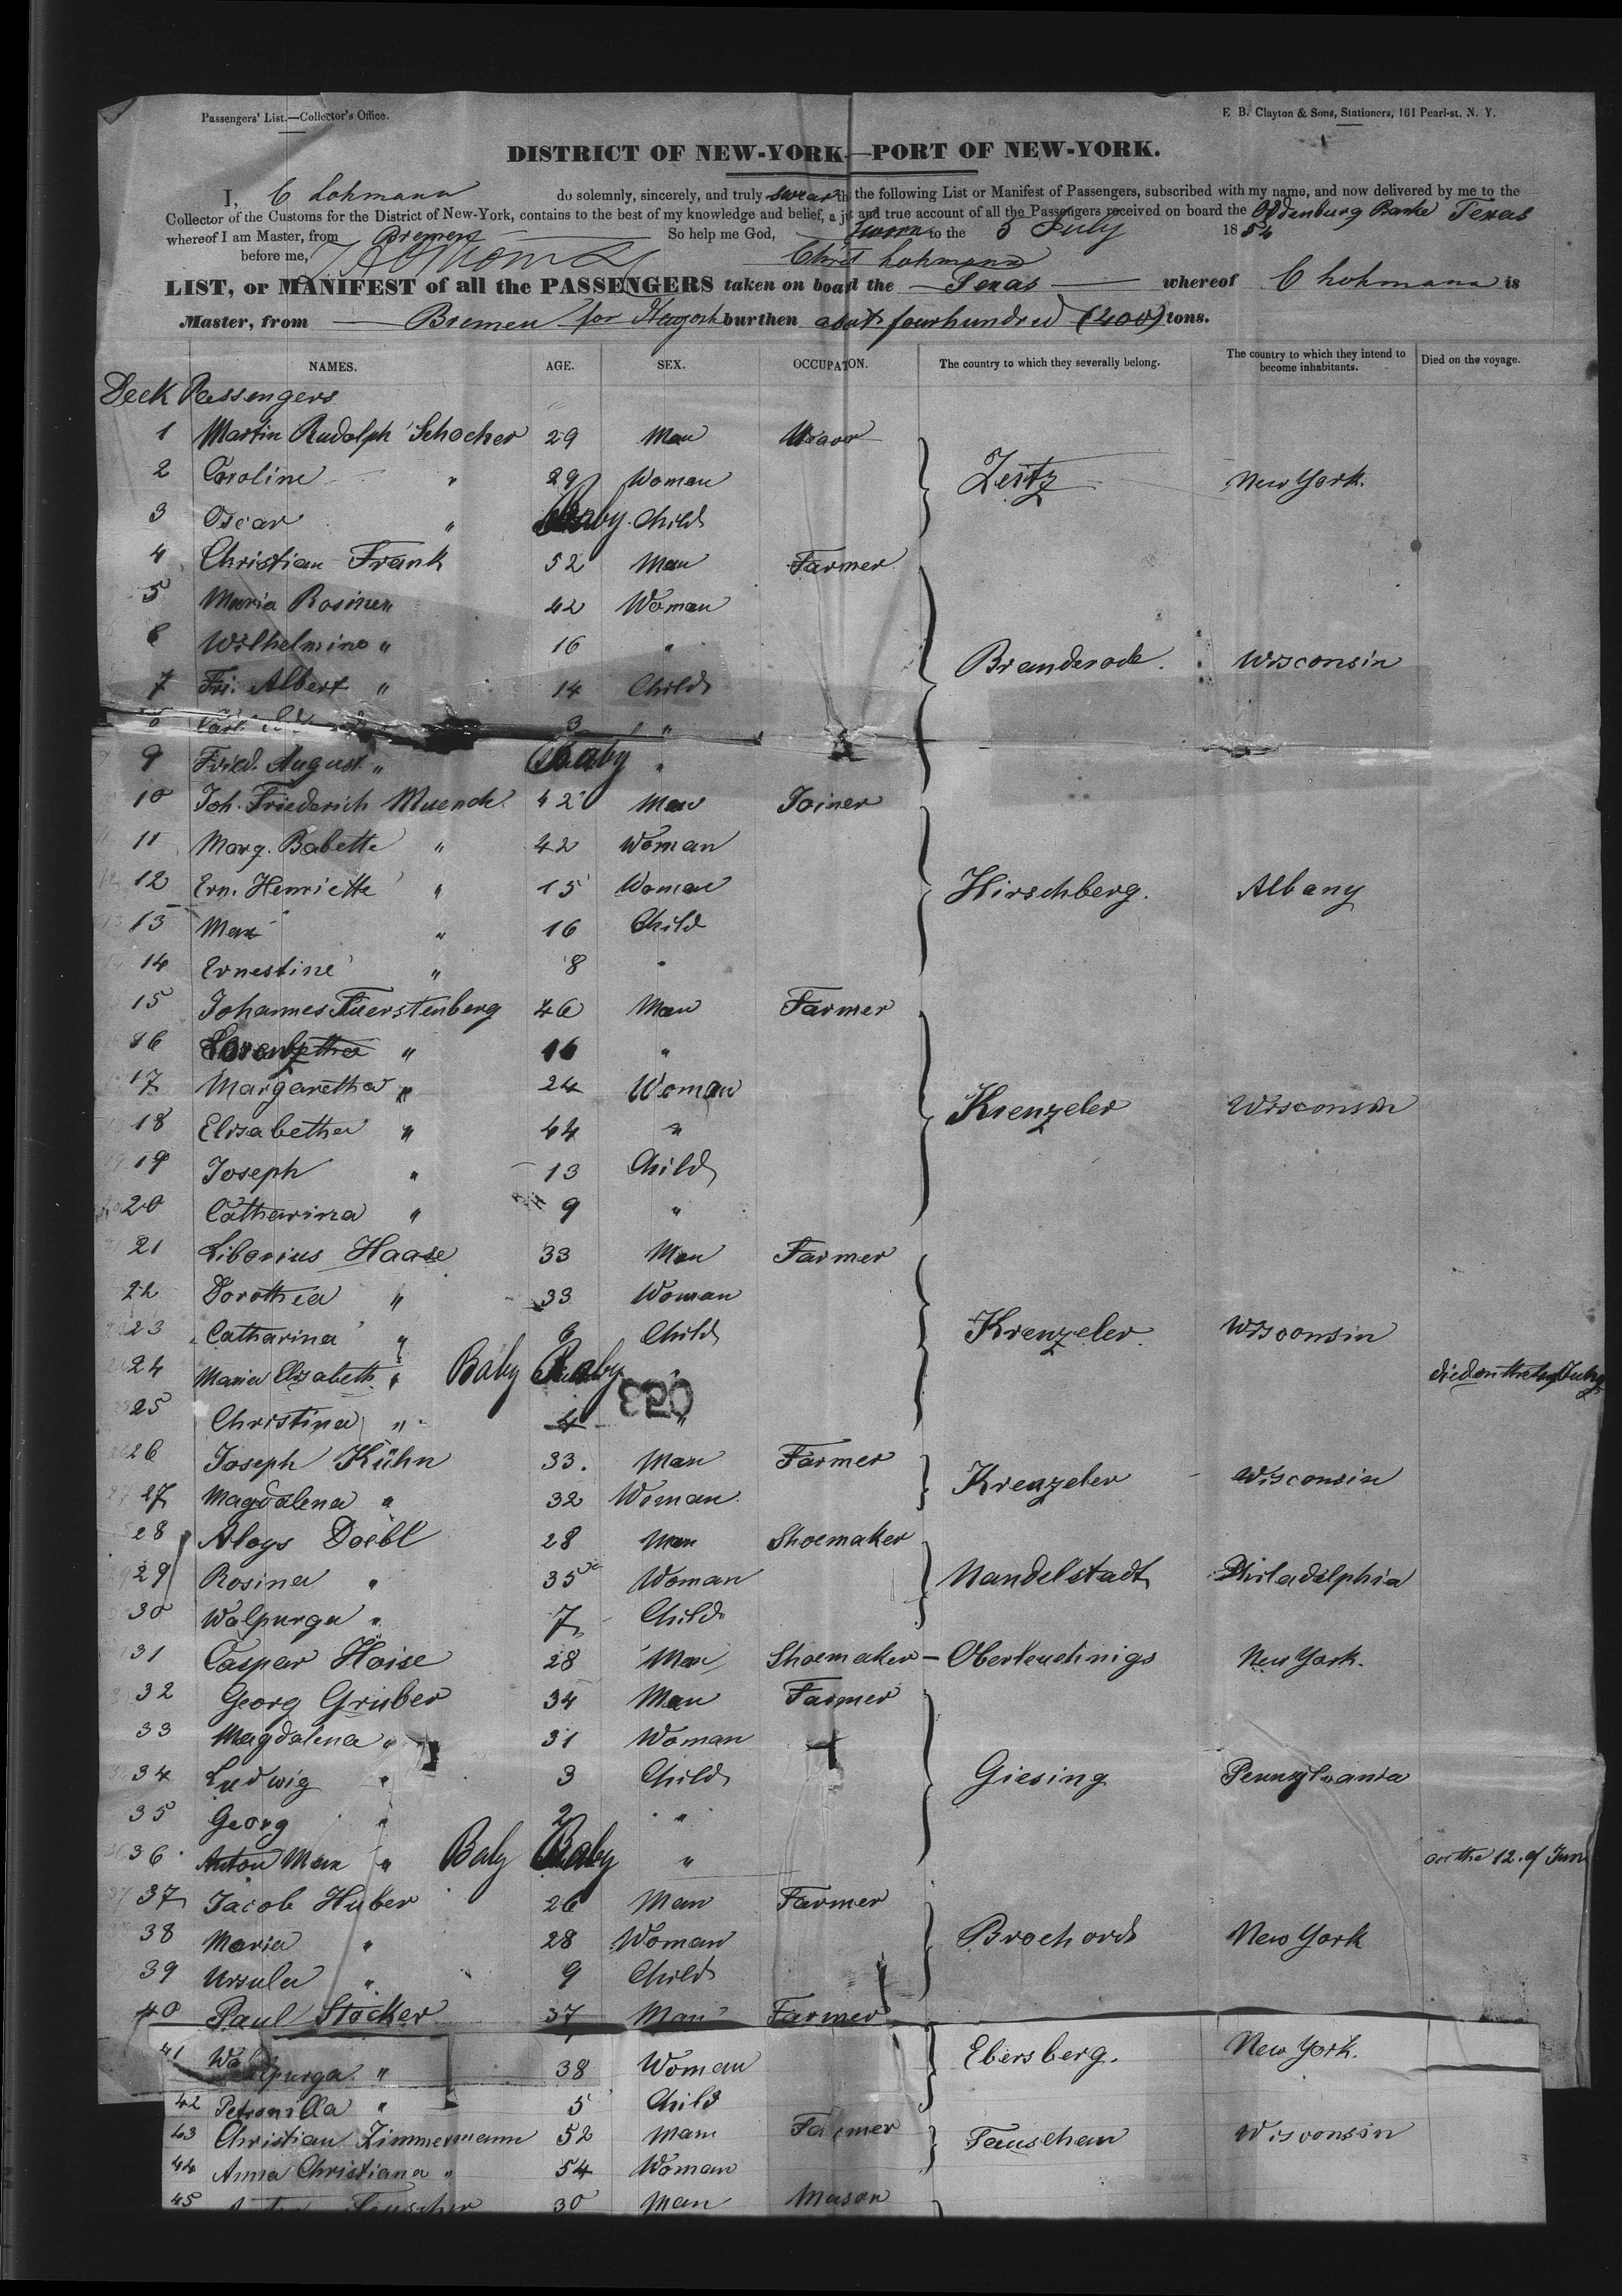 Passengers' List.—Collector's Office.
E. B. Clayton & Sons, Stationers, 161 Pearl-st. N. Y.
DISTRICT OF NEW-YORK—PORT OF NEW-YORK.
I, C Lohmann do solemnly, sincerely, and truly swear th the following List or Manifest of Passengers, subscribed with my name, and now delivered by me to the
Collector of the Customs for the District of New-York, contains to the best of my knowledge and belief, a j t and true account of all the Passengers received on board the Oldenburg Barke Texas
whereof I am Master, from Bremen So help me God, Sworn to the 5 July 1854
before me, Christ Lohmann
LIST, or MANIFEST of all the PASSENGERS taken on board the Texas whereof C Lohmann is
Master, from Bremen for burthen about fourhundred (400) tons.
NAMES. AGE. SEX. OCCUPATON. The country to which they severally belong. The country to which they intend to become inhabitants. Died on the voyage.
Deck Passengers
1 Martin Rudolph Schocher 29 Man
2 Caroline " 29 Woman Zeitz New York.
3 Oscar " Baby Child
4 Christian Frank 52 Man Farmer
5 Maria Rosine " 42 Woman
6 Wilhelmine " 16 "
7 Fri. Albert " 14 Child Branderode. Wisconsin
8 3 "
9 Fried. August " Baby "
10 Joh. Friederich Muench 42 Man Joiner
11 Marg. Babette " 42 Woman
12 Ern. Henriette " 15 Woman Hirschberg. Albany
13 Max " 16 Child
14 Ernestine " 8 "
15 Johannes Fuerstenberg 46 Man Farmer
16 " 16 "
17 Margaretha " 24 Woman Krenzeler Wisconsin
18 Elisabetha " 44 "
19 Joseph " 13 Child
20 Catharina " 9 "
21 Liborius Haase 33 Man Farmer
22 Dorothea " 33 Woman
23 Catharina " 6 Child Krenzeler Wisconsin
24 Maria Elisabeth " Baby Baby " died on the
25 Christina " 4 "
26 Joseph Kühn 33. Man Farmer
27 Magdalena " 32 Woman Krenzeler Wisconsin
28 Aloys Doebl 28 Man Shoemaker
29 Rosina " 35 Woman Nandelstadt Philadelphia
30 Walpurga " 7 Child
31 Caspar Hoise 28 Man Shoemaker — New York.
32 Georg Gruber 34 Man Farmer
33 Magdalena " 31 Woman
34 Ludwig " 3 Child Giesing Pennsylvania
35 Georg " 2 "
36 Anton Max " Baby Baby " on the 12. of Jun
37 Jacob Huber 26 Man Farmer
38 Maria " 28 Woman New York
39 Ursula " 9 Child
40 Paul Stocker 37 Man Farmer
41 Walpurga " 38 Woman Ebersberg. New York.
42 Petronilla " 5 Child
43 Christian Zimmermann 52 Man Farmer Tauschau Wisconsin
44 Anna Christiana " 54 Woman
45 30 Man Mason